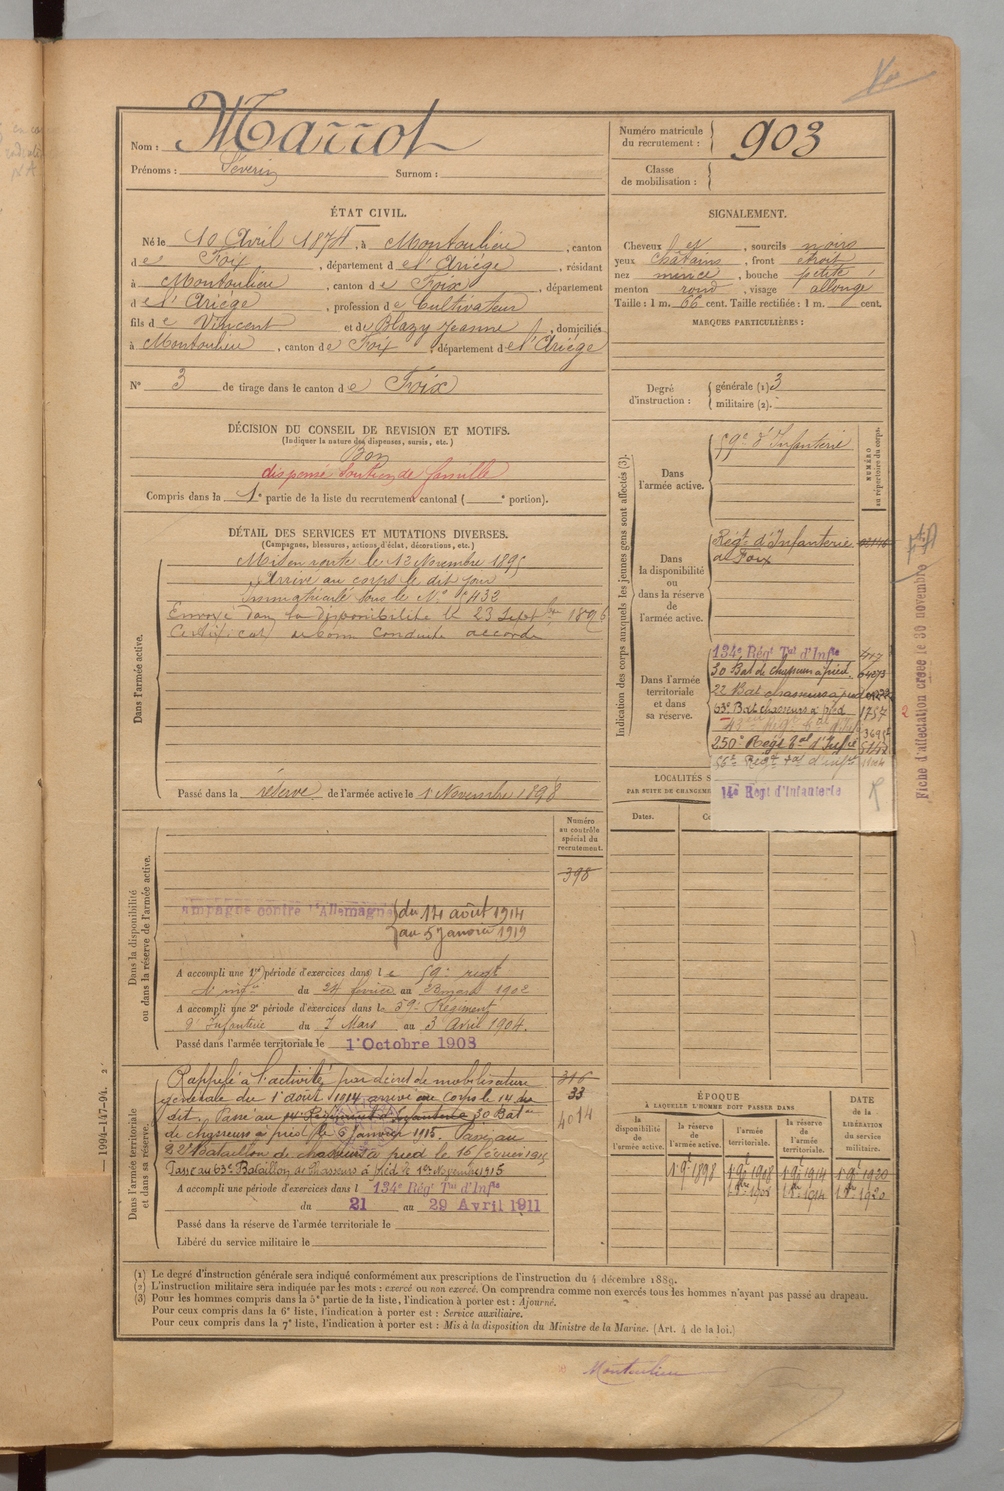 Nom : Marrot
Prénoms : Séverin Surnom :
Numéro matricule du recrutement : 903
Classe de mobilisation :
ÉTAT CIVIL.
Né le 10 Avril 1874, à Montoulieu, canton
de Foix, département de l'Ariège, résidant
à Montoulieu, canton de Foix, département
de l'Ariège, profession de Cultivateur
fils de Vincent et de Blazy Jeanne, domiciliés
à Montoulieu, canton de Foix, département de l'Ariège
N° 3 de tirage dans le canton de Foix
SIGNALEMENT.
Cheveux et, sourcils noirs
yeux chatains, front étroit
nez mince, bouche petite
menton rond, visage allongé
Taille : 1 m. 66 cent. Taille rectifiée : 1 m. cent.
MARQUES PARTICULIÈRES :
Degré d'instruction : générale (1) 3
militaire (2).
DÉCISION DU CONSEIL DE REVISION ET MOTIFS.
(Indiquer la nature des dispenses, sursis, etc.)
Bon
dispensé Soutien de famille
Compris dans la 1e partie de la liste du recrutement cantonal ( e portion).
DÉTAIL DES SERVICES ET MUTATIONS DIVERSES.
(Campagnes, blessures, actions d'éclat, décorations, etc.)
Dans l'armée active.
Mis en route le 13 Novembre 1895
Arrivé au corps le dit jour
Immatriculé sous le N° 5432
Envoyé dans la disponibilité le 23 Septbre 1896
Certificat de bonne Conduite accordé
Passé dans la réserve de l'armée active le 1 Novembre 1898
Indication des corps auxquels les jeunes gens sont affectés (3).
NUMÉRO au répertoire du corps.
Dans l'armée active.
59e d'Infanterie
Dans la disponibilité ou dans la réserve de l'armée active.
Régt d'Infanterie
de Foix
Dans l'armée territoriale et dans sa réserve.
134e Régt Tal d'Infie
30 Bat de chasseurs à pied
22 Bat chasseurs à pied
63e Bat chasseurs à pied 1757
250e Régt Tal d'Infie
14e Regt d'Infanterie
Fiche d'affectation créée le 30 novembre
LOCALITÉS S
PAR SUITE DE CHANGEM
Dates.
Dans la disponibilité ou dans la réserve de l'armée active.
Numéro au contrôle spécial du recrutement.
398
ampagne contre l'Allemagne du 14 août 1914
au 5 Janvier 1919
A accompli une 1re période d'exercices dans le 59e régt
d'infie du 24 février au 23 mars 1902
A accompli une 2e période d'exercices dans le 59e Régiment
d'Infanterie du 7 Mars au 3 Avril 1904.
Passé dans l'armée territoriale le 1er Octobre 1908
Dans l'armée territoriale et dans sa réserve.
Rappelé à l'activité par décret de mobilisation
générale du 1er août 1914 arrivé au Corps le 14 du
dit, Passé au 14 Régiment d'Infanterie 30 Baton
de chasseurs à pied le 6 Janvier 1915 Passé au
22e Bataillon de chasseurs à pied le 16 février 1915
Passé au 63e Bataillon de Chasseurs à Pied le 1er Novembre 1915
316
33
4014
A accompli une période d'exercices dans l 134e Régt Tal d'Infie
du 21 au 29 Avril 1911
Passé dans la réserve de l'armée territoriale le
Libéré du service militaire le
ÉPOQUE
À LAQUELLE L'HOMME DOIT PASSER DANS
la disponibilité de l'armée active.
la réserve de l'armée active.
l'armée territoriale.
la réserve de l'armée territoriale.
DATE de la LIBÉRATION du service militaire.
1 9e 1898 1 9e 1908 1 9e 1914 1 9e 1920
— 1994-147-94. 2
(1) Le degré d'instruction générale sera indiqué conformément aux prescriptions de l'instruction du 4 décembre 1889.
(2) L'instruction militaire sera indiquée par les mots : exercé ou non exercé. On comprendra comme non exercés tous les hommes n'ayant pas passé au drapeau.
(3) Pour les hommes compris dans la 5e partie de la liste, l'indication à porter est : Ajourné.
Pour ceux compris dans la 6e liste, l'indication à porter est : Service auxiliaire.
Pour ceux compris dans la 7e liste, l'indication à porter est : Mis à la disposition du Ministre de la Marine. (Art. 4 de la loi.)
Montoulieu